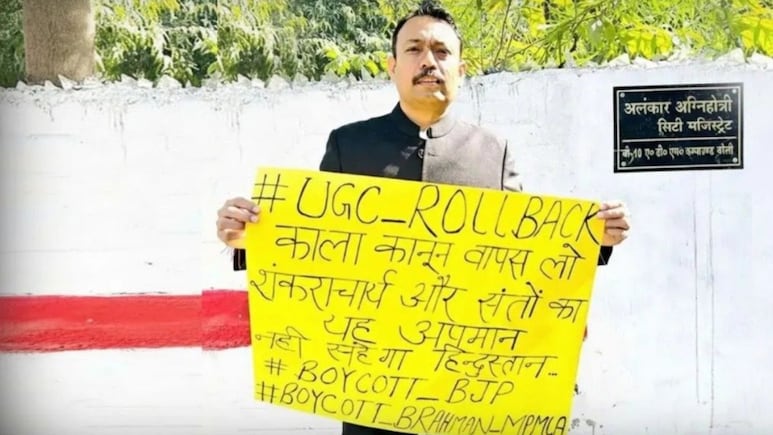 अलंकार अग्निहोत्री
सिटी मजिस्ट्रेट
बी-10 ए० डी० एम० कम्पाउण्ड बरेली
#UGC_ROLLBACK
काला कानून वापस लो
शंकराचार्य और संतों का
यह अपमान
नही सहेगा हिन्दुस्तान...
#BOYCOTT_BJP
#BOYCOTT_BRAHMAN_MPMLA